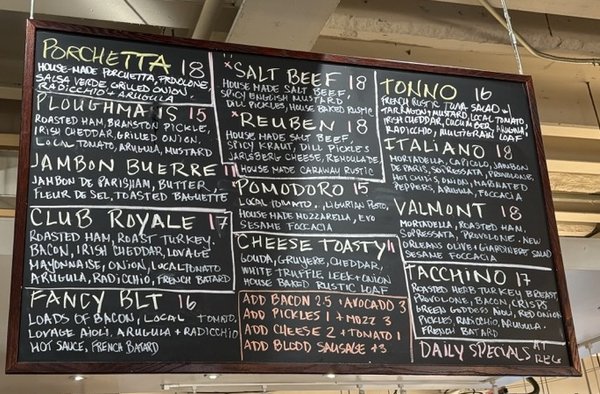 PORCHETTA 18
HOUSE-MADE PORCHETTA, PROVOLONE,
SALSA VERDE, GRILLED ONION
RADICCHIO & ARUGULA
PLOUGHMAN'S 15
ROASTED HAM, BRANSTON PICKLE,
IRISH CHEDDAR, GRILLED ONION,
LOCAL TOMATO, ARUGULA, MUSTARD
JAMBON BUERRE 11
JAMBON DE PARISHAM, BUTTER,
FLEUR DE SEL, TOASTED BAGUETTE
CLUB ROYALE 17
ROASTED HAM, ROAST TURKEY,
BACON, IRISH CHEDDAR, LOVAGE
MAYONNAISE, ONION, LOCAL TOMATO
ARUGULA, RADICCHIO, FRENCH BATARD
FANCY BLT 16
LOADS OF BACON, LOCAL TOMATO,
LOVAGE AIOLI, ARUGULA + RADICCHIO
HOT SAUCE, FRENCH BATARD
*SALT BEEF 18
HOUSE MADE SALT BEEF,
SPICY ENGLISH MUSTARD
DILL PICKLES, HOUSE BAKED RUSTIC
*REUBEN 18
HOUSE MADE SALT BEEF,
SPICY KRAUT, DILL PICKLES
JARLSBERG CHEESE, REMOULADE,
HOUSE MADE CARAWAY RUSTIC
POMODORO 15
LOCAL TOMATO, LIGURIAN PESTO,
HOUSE MADE MOZZARELLA, EVO
SESAME FOCCACIA
CHEESE TOASTY 11
GOUDA, GRUYERE, CHEDDAR,
WHITE TRUFFLE LEEK + ONION
HOUSE BAKED RUSTIC LOAF
ADD BACON 2.5 + AVOCADO 3
ADD PICKLES 1 + MOZZ 3
ADD CHEESE 2 + TOMATO 1
ADD BLOOD SAUSAGE +3
TONNO 16
FRENCH RUSTIC TUNA SALAD W/
TARRAGON + MUSTARD, LOCAL TOMATO,
IRISH CHEDDAR, CUCUMBER, ARUGULA,
RADICCHIO, MULTIGRAIN LOAF
ITALIANO 18
MORTADELLA, CAPICOLO, JAMBON
DE PARIS, SOPRESSATA, PROVOLONE,
HOT SAUCE, ONION, MARINATED
PEPPERS, ARUGULA, FOCCACIA
VALMONT 18
MORTADELLA, ROASTED HAM,
SOPRESSATA, PROVOLONE, NEW
ORLEANS OLIVE + GIARDINIERE SALAD
SESAME FOCCACIA
TACCHINO 17
ROASTED HERB TURKEY BREAST
PROVOLONE, BACON, CRISPS
GREEN GODDESS AIOLI, RED ONION
PICKLES RADICCHIO, ARUGULA.
FRENCH BATARD
DAILY SPECIALS AT REG